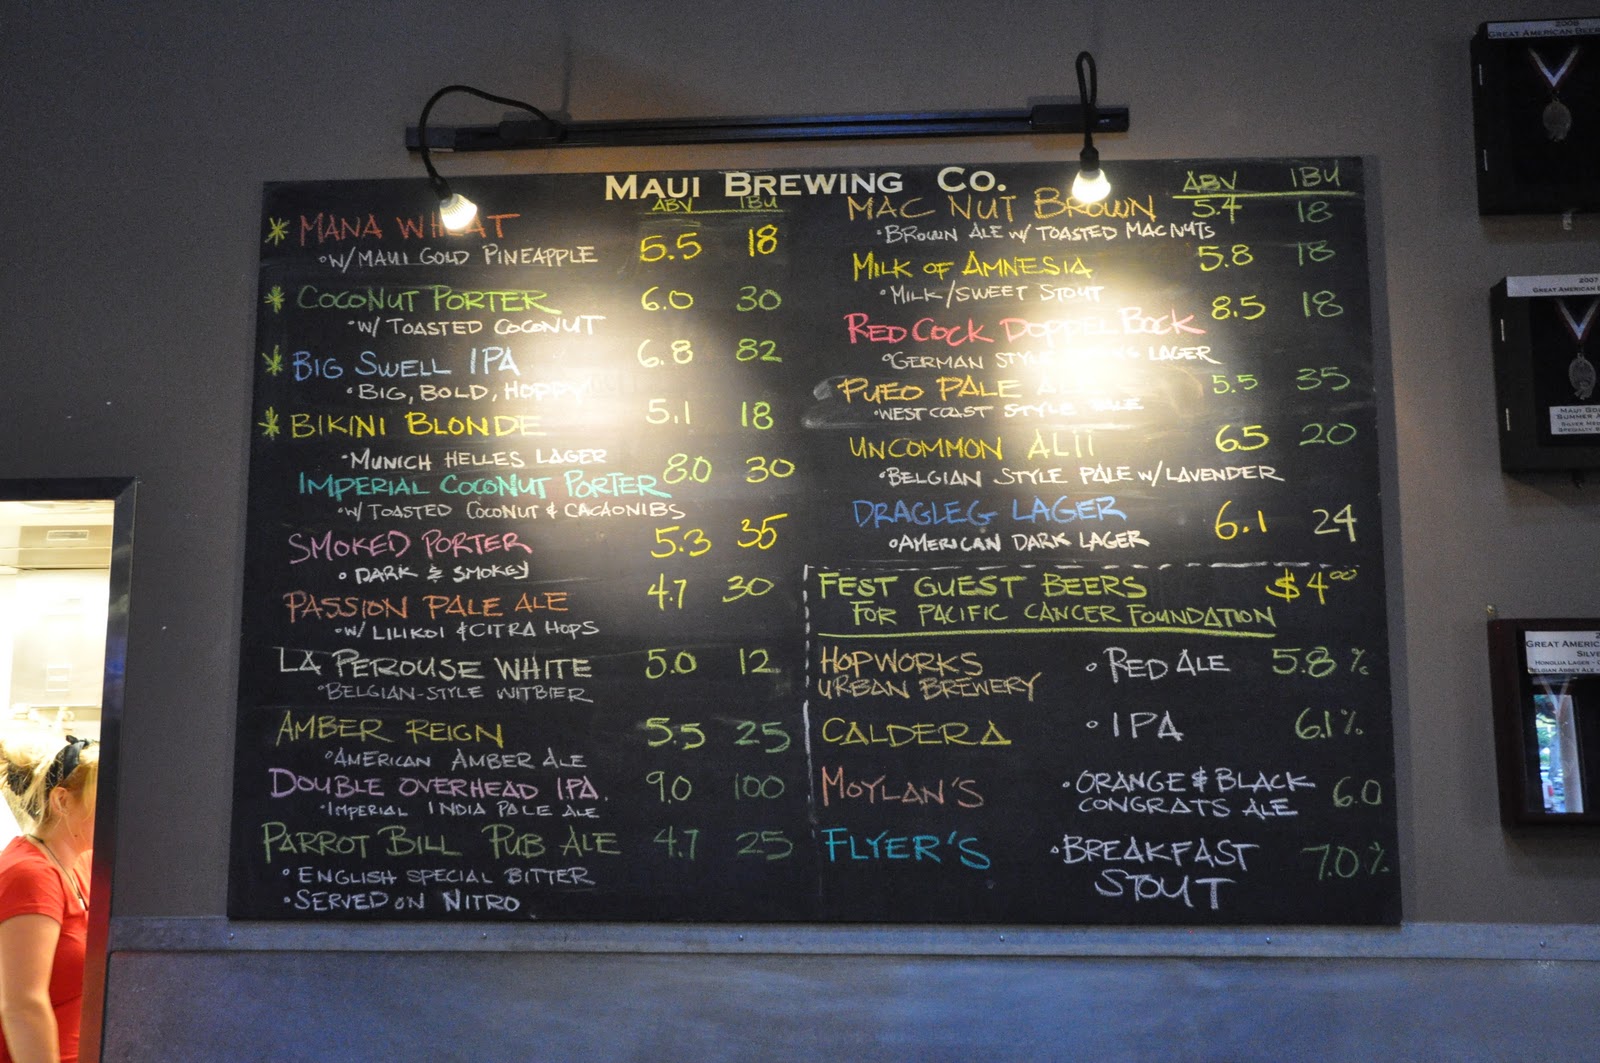 MAUI BREWING CO.
ABV IBU
* MANA WHEAT 5.5 18
• W/ MAUI GOLD PINEAPPLE
* COCONUT PORTER 6.0 30
• W/ TOASTED COCONUT
* BIG SWELL IPA 6.8 82
• BIG, BOLD, HOPPY!
* BIKINI BLONDE 5.1 18
• MUNICH HELLES LAGER
IMPERIAL COCONUT PORTER 8.0 30
• W/ TOASTED COCONUT & CACAONIBS
SMOKED PORTER 5.3 35
• DARK & SMOKEY
PASSION PALE ALE 4.7 30
• W/ LILIKOI & CITRA HOPS
LA PEROUSE WHITE 5.0 12
• BELGIAN-STYLE WITBIER
AMBER REIGN 5.5 25
• AMERICAN AMBER ALE
DOUBLE OVERHEAD I.P.A. 9.0 100
• IMPERIAL INDIA PALE ALE
PARROT BILL PUB ALE 4.7 25
• ENGLISH SPECIAL BITTER
• SERVED ON NITRO
ABV IBU
MAC NUT BROWN 5.4 18
• BROWN ALE W/ TOASTED MAC NUTS
MILK OF AMNESIA 5.8 18
• MILK/SWEET STOUT
RED COCK DOPPEL BOCK 8.5 18
• GERMAN STYLE LAGER
PUEO PALE 5.5 35
• WEST COAST STYLE PALE
UNCOMMON ALII 6.5 20
• BELGIAN STYLE PALE W/ LAVENDER
DRAGLEG LAGER 6.1 24
• AMERICAN DARK LAGER
FEST GUEST BEERS $4.00
FOR PACIFIC CANCER FOUNDATION
HOPWORKS URBAN BREWERY • RED ALE 5.8%
CALDERA • IPA 6.1%
MOYLAN'S • ORANGE & BLACK CONGRATS ALE 6.0
FLYER'S • BREAKFAST STOUT 7.0%
GREAT AMERICAN BEER
2007
GREAT AMERICAN
MAUI
SUMMER
SILVER
GREAT AMERIC
SILVE
HONOLUA LAGER
BELGIAN ABBEY ALE